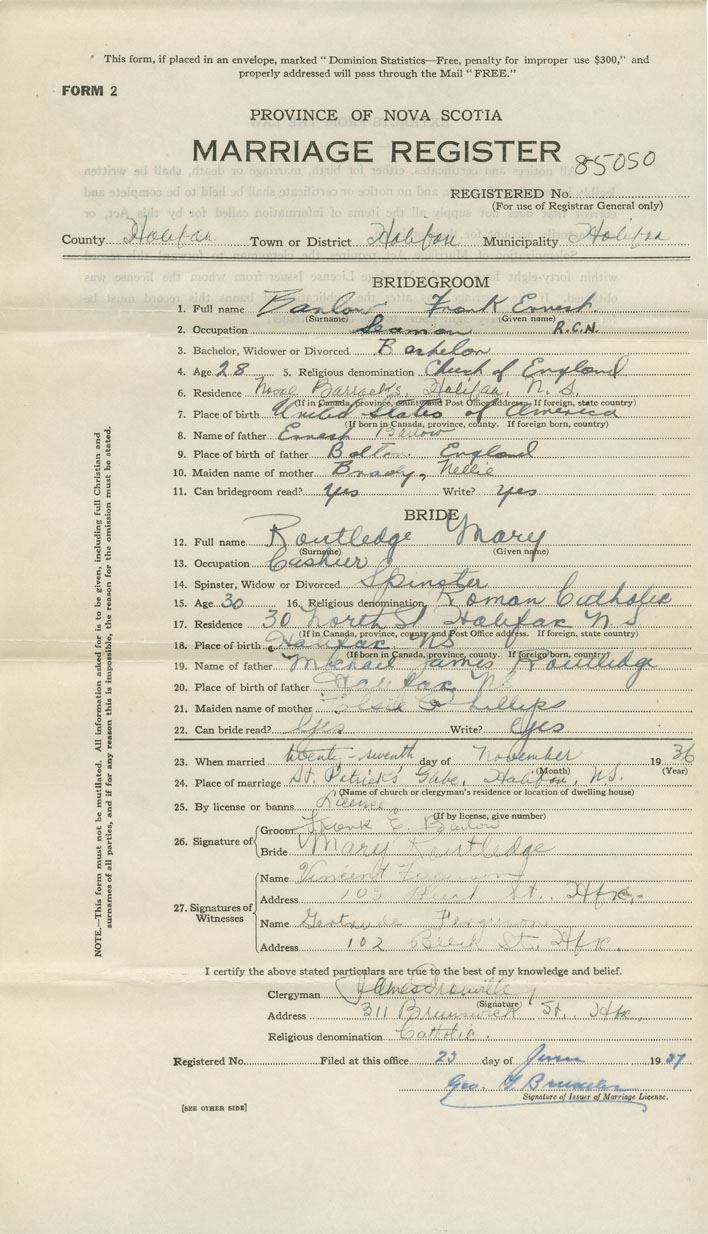 This form, if placed in an envelope, marked "Dominion Statistics—Free, penalty for improper use $300," and
properly addressed will pass through the Mail "FREE."
FORM 2
PROVINCE OF NOVA SCOTIA
MARRIAGE REGISTER 85050
REGISTERED No.
(For use of Registrar General only)
County Halifax Town or District Halifax Municipality Halifax
BRIDEGROOM
1. Full name Barlow Frank Ernest.
(Surname) (Given name)
2. Occupation Seaman R.C.N.
3. Bachelor, Widower or Divorced Bachelor
4. Age 28 5. Religious denomination Church of England
6. Residence Barracks, Halifax, N. S.
(If in Canada, province, county and Post Office address. If foreign, state country)
7. Place of birth United States of America
(If born in Canada, province, county. If foreign born, country)
8. Name of father Ernest Barlow
9. Place of father Bolton. England
10. Maiden name of mother Brady, Nellie
11. Can bridegroom read? Yes Write? Yes
BRIDE
12. Full name Routledge Mary
(Surname) (Given name)
13. Occupation Cashier
14. Spinster, Widow or Divorced Spinster
15. Age 30 16. Religious denomination Roman Catholic
17. Residence 30 North St Halifax N S
(If in Canada, province, county and Post Office address. If foreign, state country)
18. Place of birth Halifax NS
(If born in Canada, province, county. If foreign born, country)
19. Name of father Michael James Routledge
20. Place of birth of father Halifax NS
21. Maiden name of mother Phillips
22. Can bride read? Yes Write? Yes
23. When married twenty-seventh day of November 1936
(Month) (Year)
24. Place of marriage St. Patrick's Glebe, Halifax, N.S.
(Name of church or clergyman's residence or location of dwelling house)
25. By license or banns License
(If by license, give number)
26. Signature of
Groom Frank E. Barlow
Bride Mary Routledge
27. Signatures of Witnesses
Name Vincent Ferguson
Address St. Hfx.
Name Gertrude Ferguson
Address 102 Beech St. Hfx.
I certify the above stated particulars are true to the best of my knowledge and belief.
Clergyman James
(Signature)
Address 311 Brunswick St. Hfx.
Religious denomination Catholic.
Registered No. Filed at this office 23 day of June 1937
Geo.
Signature of Issuer of Marriage License.
[SEE OTHER SIDE]
NOTE.—This form must not be mutilated. All information asked for is to be given, including full Christian and
surnames of all parties, and if for any reason this is impossible, the reason for the omission must be stated.